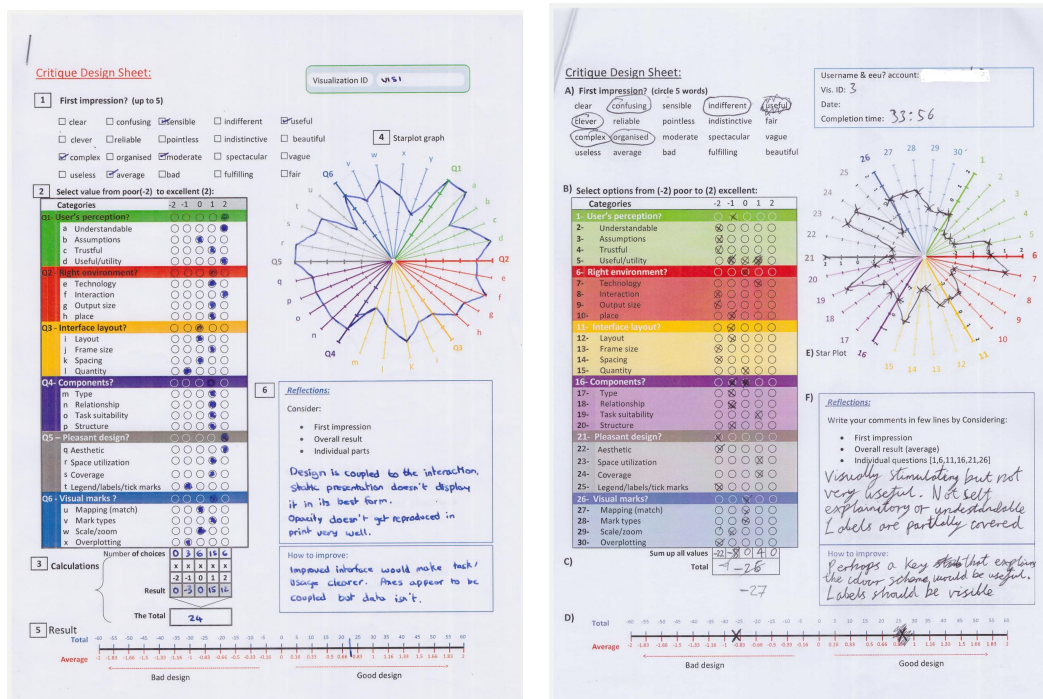 Critique Design Sheet:
Visualization ID VIS1
1 First impression? (up to 5)
clear confusing sensible indifferent useful
clever reliable pointless indistinctive beautiful
complex organised moderate spectacular vague
useless average bad fulfilling fair
4 Starplot graph
2 Select value from poor(-2) to excellent (2):
Categories -2 -1 0 1 2
Q1- User's perception?
a Understandable
b Assumptions
c Trustful
d Useful/utility
Q2- Right environment?
e Technology
f Interaction
g Output size
h place
Q3 - Interface layout?
i Layout
j Frame size
k Spacing
l Quantity
Q4- Components?
m Type
n Relationship
o Task suitability
p Structure
Q5 - Pleasant design?
q Aesthetic
r Space utilization
s Coverage
t Legend/labels/tick marks
Q6 - Visual marks ?
u Mapping (match)
v Mark types
w Scale/zoom
x Overplotting
w x y Q1 a b c d Q2 e f g h Q3 i k l m Q4 n o p q Q5 r s t u Q6 v
3 Calculations
Number of choices 0 3 6 15 6
x x x x x
-2 -1 0 1 2
Result 0 -3 0 15 12
The Total 24
6 Reflections:
Consider:
• First impression
• Overall result
• Individual parts
Design is coupled to the interaction,
static presentation doesn't display
it in its best form.
Opacity doesn't get reproduced in
print very well.
How to improve:
Improved interface would make task/
usage clearer. Axes appear to be
coupled but data isn't.
5 Result
Total -60 -55 -50 -45 -40 -35 -30 -25 -20 -15 -10 -5 0 5 10 15 20 25 30 35 40 45 50 55 60
Average -2 -1.83 -1.66 -1.5 -1.33 -1.16 -1 -0.83 -0.66 -0.5 -0.33 -0.16 0 0.16 0.33 0.5 0.66 0.83 1 1.16 1.33 1.5 1.66 1.83 2
Bad design Good design
Critique Design Sheet:
Username & eeu? account:
Vis. ID: 3
Date:
Completion time: 33:56
A) First impression? (circle 5 words)
clear confusing sensible indifferent useful
clever reliable pointless indistinctive fair
complex organised moderate spectacular vague
useless average bad fulfilling beautiful
B) Select options from (-2) poor to (2) excellent:
Categories -2 -1 0 1 2
1- User's perception?
2- Understandable
3- Assumptions
4- Trustful
5- Useful/utility
6- Right environment?
7- Technology
8- Interaction
9- Output size
10- place
11- Interface layout?
12- Layout
13- Frame size
14- Spacing
15- Quantity
16- Components?
17- Type
18- Relationship
19- Task suitability
20- Structure
21- Pleasant design?
22- Aesthetic
23- Space utilization
24- Coverage
25- Legend/labels/tick marks
26- Visual marks?
27- Mapping (match)
28- Mark types
29- Scale/zoom
30- Overplotting
Sum up all values -22 -8 0 4 0
C) Total -26
-27
E) Star Plot
1 2 3 4 5 6 7 8 9 10 11 12 13 14 15 16 17 18 19 20 21 22 23 24 25 26 27 28 29 30
F) Reflections:
Write your comments in few lines by Considering:
• First impression
• Overall result (average)
• Individual questions [1,6,11,16,21,26]
Visually stimulating but not
very useful. Not self
explanatory or understandable
Labels are partially covered
How to improve:
Perhaps a key that explains
the colour scheme, would be useful.
Labels should be visible
D)
Total -60 -55 -50 -45 -40 -35 -30 -25 -20 -15 -10 -5 0 5 10 15 20 25 30 35 40 45 50 55 60
Average -2 -1.83 -1.66 -1.5 -1.33 -1.16 -1 -0.83 -0.66 -0.5 -0.33 -0.16 0 0.16 0.33 0.5 0.66 0.83 1 1.16 1.33 1.5 1.66 1.83 2
Bad design Good design